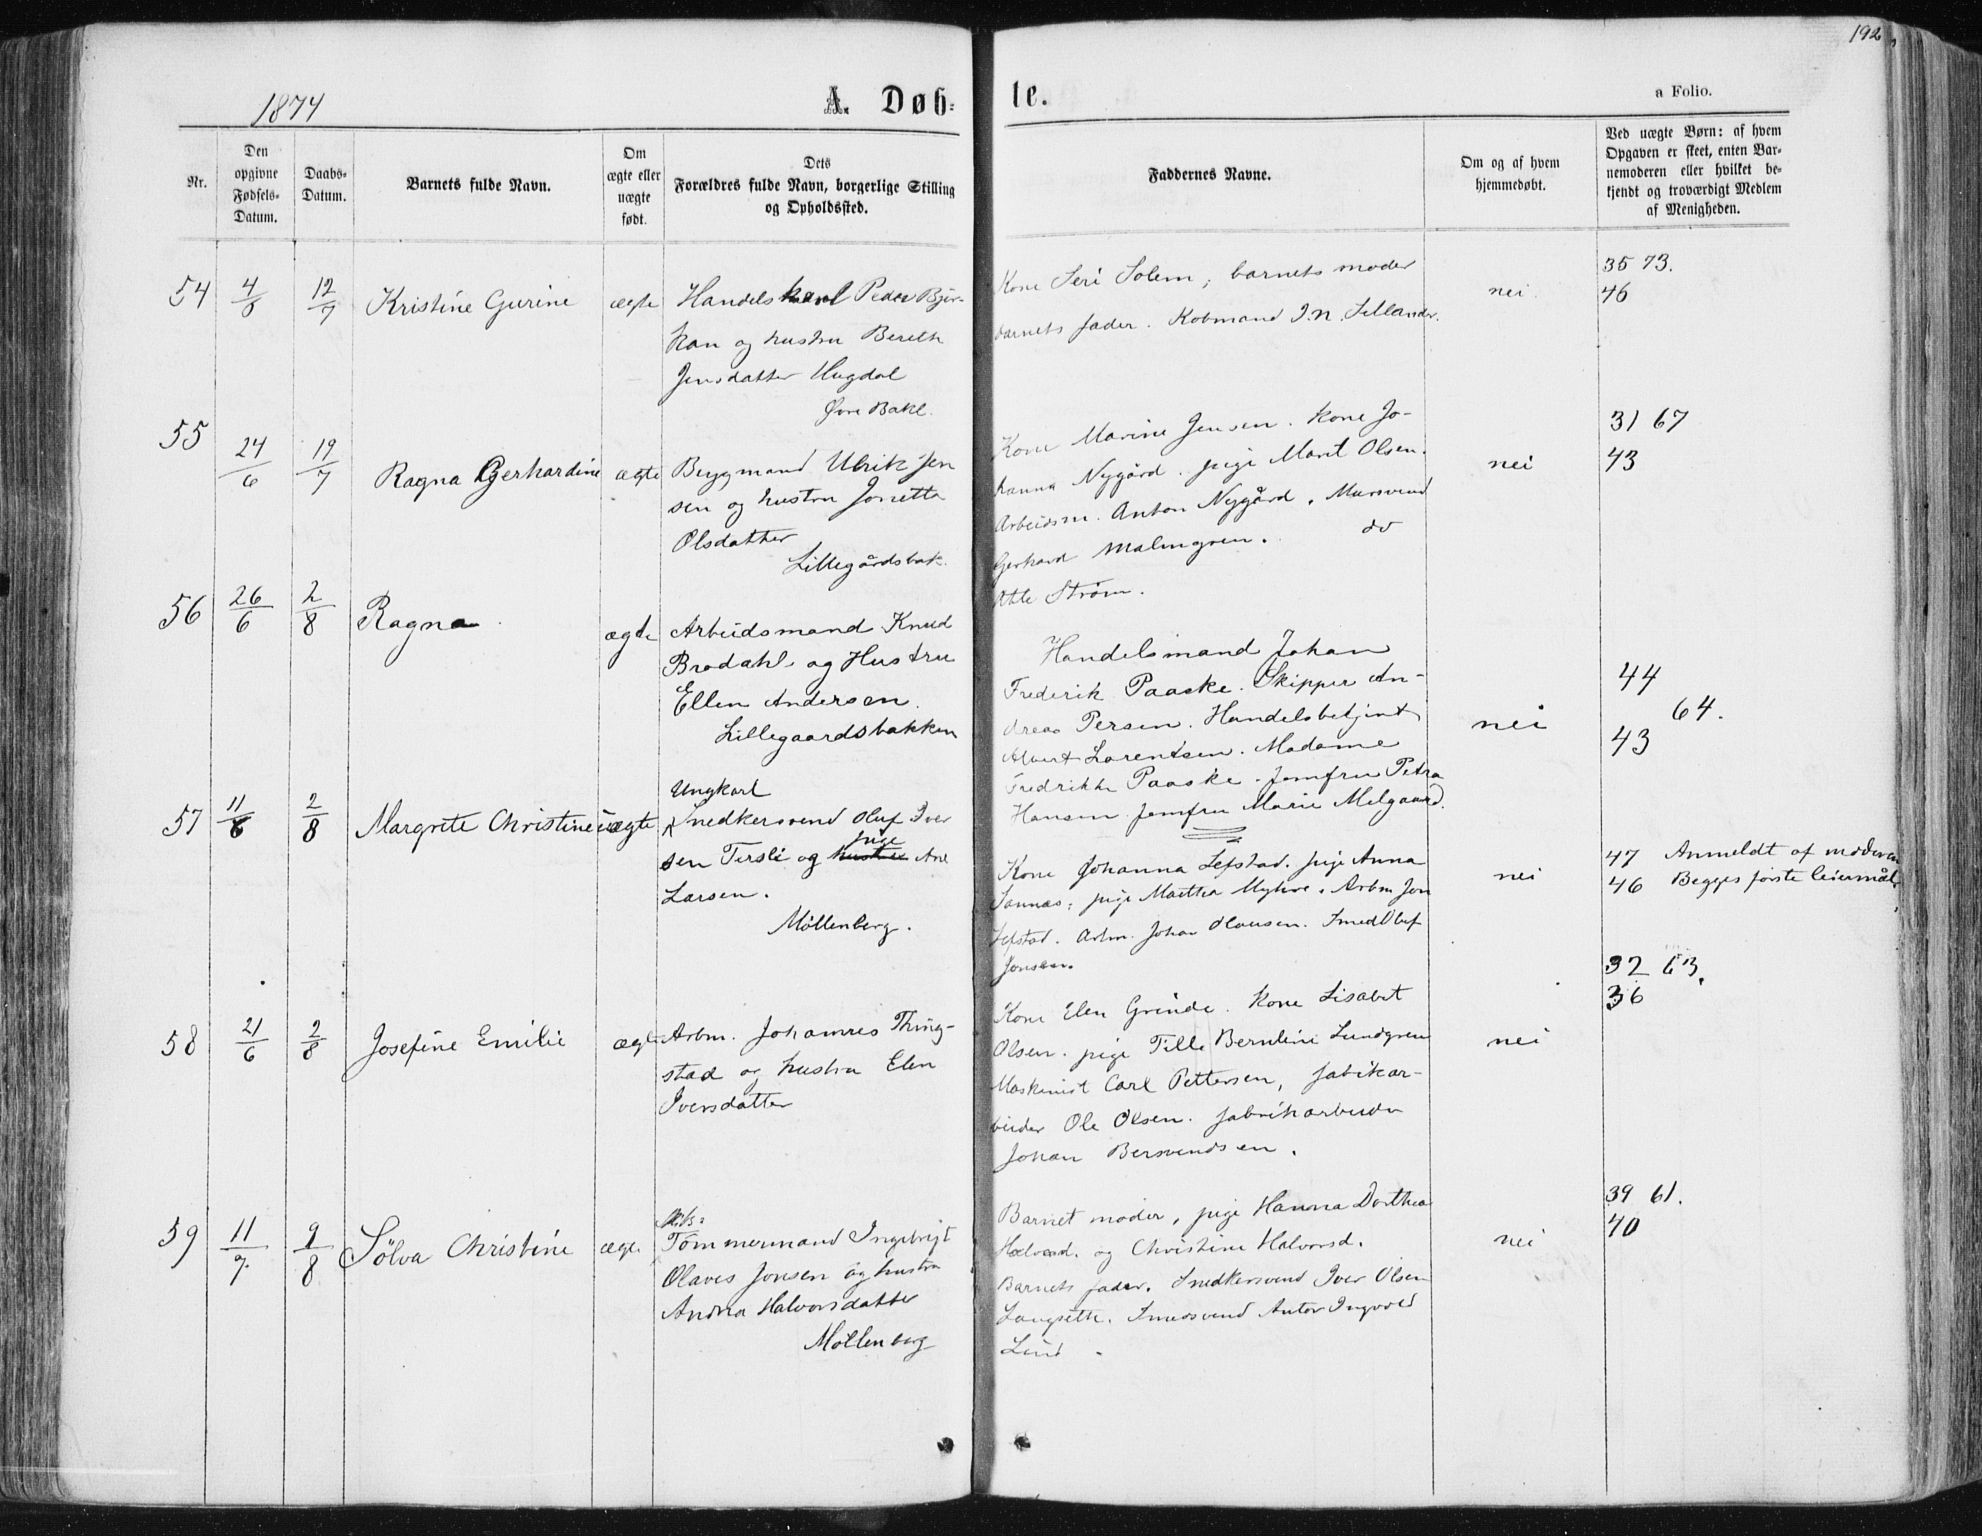 192
1874
A. Døb-
te.
a Folio.
Nr.
Den opgivne Fødsels-Datum.
Daabs-Datum.
Barnets fulde Navn.
Om ægte eller uægte født.
Dets Forældres fulde Navn, borgerlige Stilling og Opholdssted.
Faddernes Navne.
Om og af hvem hjemmedøbt.
Ved uægte Børn: af hvem Opgaven er skeet, enten Barnemoderen eller hvilket bekjendt og troværdigt Medlem af Menigheden.
54 4/8 12/7 Kristine Gurine ægte Handelskarl Peder Bjør-
kan og hustru Bereth
Jensdatter Hugdal
Øvre Bakl.
Kone Seri Solem, barnets moder
barnets fader. Kobmand I. N. Sillander.
nei
35 73.
46
55 24/6 19/7 Ragna Gerhardine ægte Bygmand Ulrik Jen
sen og hustru Jonetta
Olsdatter
Lillegårdsbak.
Kone Marine Jensen. Kone Jo-
hanna Nygård. pige Marit Olsen.
Arbeidsm. Anton Nygård. Mursvend
Gerhard Malmgren. do
Atle Strøm.
nei
31 67
43
56 26/6 2/8 Ragna ægte Arbeidsmand Knud
Brodahl og Hustru
Ellen Andersen.
Lillegaardsbakken
Handelsmand Johan
Frederik Paaske. Skipper An-
dreas Persen. Handelsbetjent
Albert Lorentsen. Madame
Fredrikke Paaske. Jomfru Petra
Hansen Jomfru Marie Melgaard.
nei
44
64.
43
57 11/6 2/8 Margrete Christine uægte Ungkarl
Snedkersvend Oluf Iver
sen Tersli og hustru pige Ane
Larsen.
Møllenberg.
Kone Johanna Lefstad. pige Anna
Sannæs; pige Martha Myhre. Arbm Jon
Lefstad. Arbm. Johan Olausen. Smed Oluf
Jonsen.
nei
47 Anmeldt af moderen
46 Begges første leiermål.
58 21/6 2/8 Josefine Emilie ægte Arbm. Johannes Thing-
stad og hustru Elen
Iversdatter
Kone Elen Grinde. Kone Lisabet
Olsen. pige Tille Berntine Lundgren
Maskinist Carl Pettersen, fabikar-
beider Ole Olsen. fabrikarbeider
Johan Bersvendsen.
nei
32 63.
36
59 11/7 9/8 Sölva Christine ægte Skibs-
Tömmermand Ingebrigt
Olaves Jonsen og hustru
Andrea Halvorsdatter
Möllenberg
Barnet moder, pige Hanna Dorthea
Halvorsd. og Christine Halvorsd.
Barnets fader. Snedkersvend Iver Olsen
Langseth. Smedsvend Anton Ingvold
Lind
nei
39 61.
40